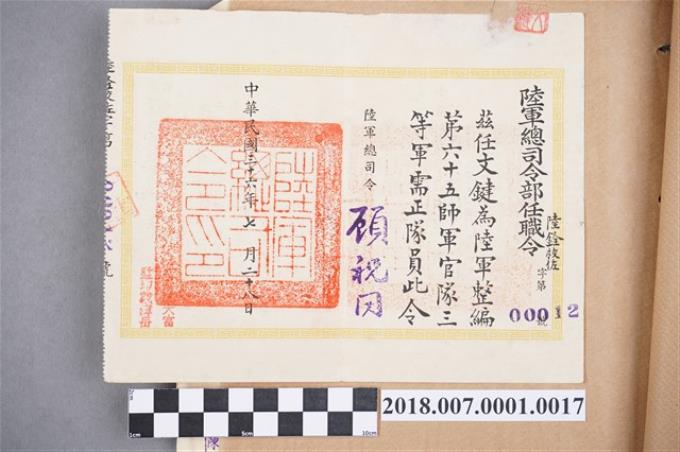 陸軍總司令部任職令
陸銓敘佐
字第00012號
茲任文鍵為陸軍整編
第六十五師軍官隊三
等軍需正隊員此令
陸軍總司令
顧祝同
中華民國三十六年七月二十八日
陸軍
總司
令印
號
1cm
5cm
10cm
2018.007.0001.0017
陳